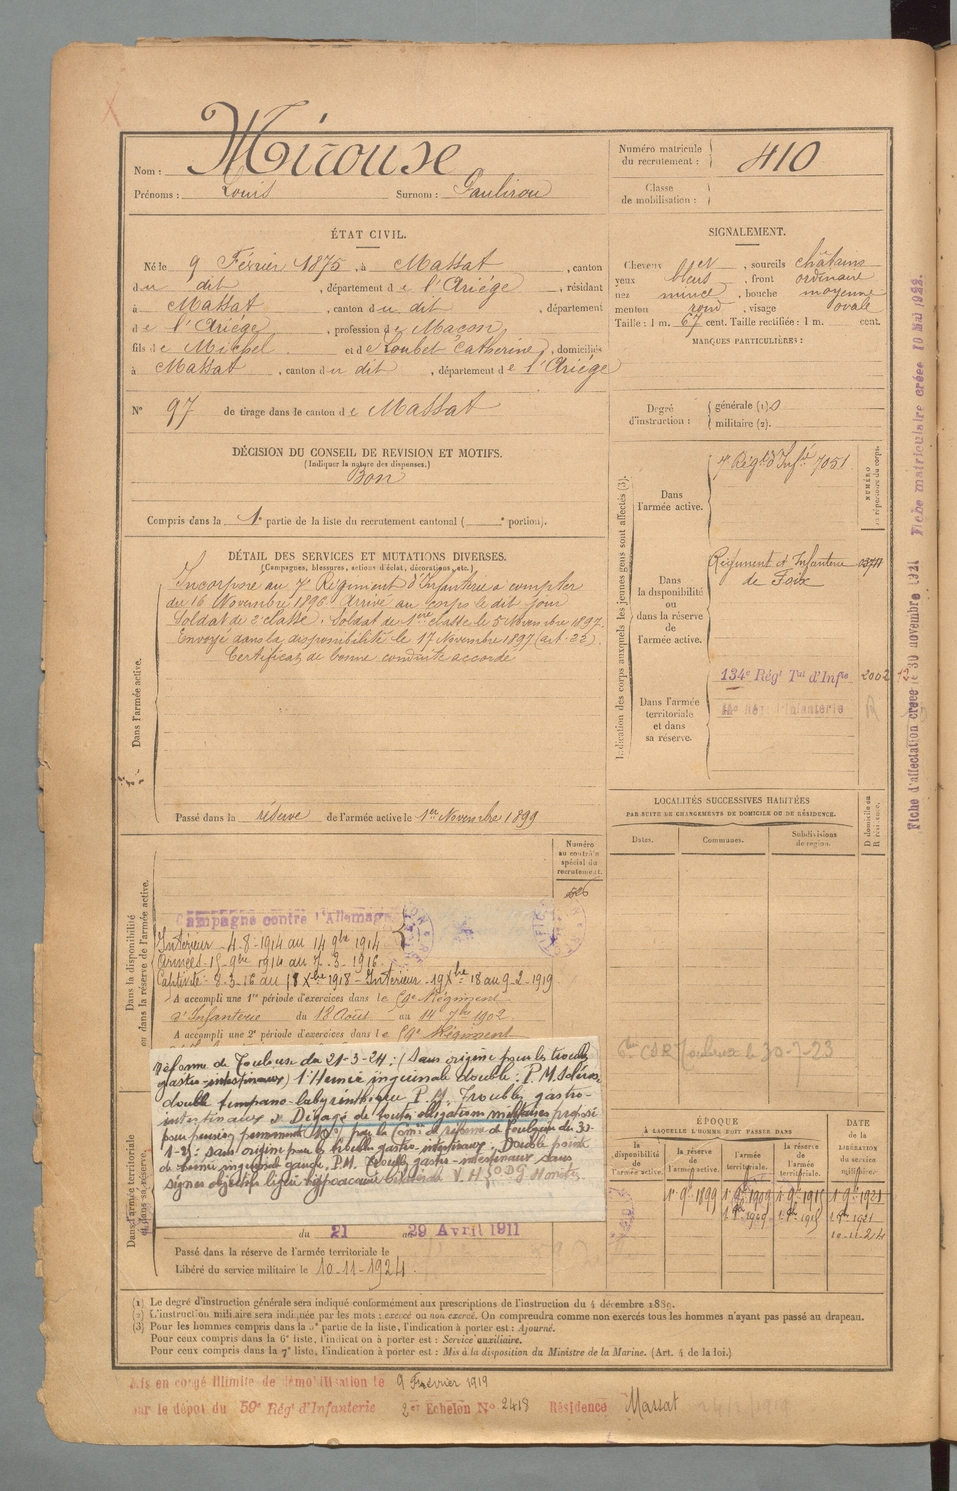 Nom : Mirouse
Prénoms : Louis Surnom : Gaulirou
Numéro matricule du recrutement : 410
Classe de mobilisation :
ÉTAT CIVIL.
Né le 9 Février 1875, à Massat, canton
du dit, département de l'Ariége, résidant
à Massat, canton du dit, département
de l'Ariége, profession de Maçon,
fils de Michel et de Loubet Catherine, domiciliés
à Massat, canton du dit, département de l'Ariége
SIGNALEMENT.
Cheveux , sourcils châtains
yeux bleus, front ordinaire
nez mince, bouche moyenne
menton rond, visage ovale
Taille : 1 m. 67 cent. Taille rectifiée : 1 m. cent.
MARQUES PARTICULIÈRES :
N° 97 de tirage dans le canton de Massat
Degré d'instruction : générale (1) 0
militaire (2).
DÉCISION DU CONSEIL DE REVISION ET MOTIFS.
(Indiquer la nature des dispenses.)
Bon
Compris dans la 1e partie de la liste du recrutement cantonal ( e portion).
DÉTAIL DES SERVICES ET MUTATIONS DIVERSES.
(Campagnes, blessures, actions d'éclat, décorations, etc.)
Dans l'armée active.
Incorporé au 7e Régiment d'Infanterie à compter
du 16 Novembre 1896. Arrivé au corps le dit jour
Soldat de 2e classe. Soldat de 1ère classe le 5 Novembre 1897.
Envoyé dans la disponibilité le 17 Novembre 1897 (art. 22).
Certificat de bonne conduite accordé
Passé dans la réserve de l'armée active le 1er Novembre 1899
Indication des corps auxquels les jeunes gens sont affectés (3).
Dans l'armée active.
7e Régt d'Infie 7051
NUMÉRO au répertoire du corps.
Dans la disponibilité ou dans la réserve de l'armée active.
Régiment d'Infanterie
de Foix
Dans l'armée territoriale et dans sa réserve.
134e Régt Tal d'Infie 2002
LOCALITÉS SUCCESSIVES HABITÉES
PAR SUITE DE CHANGEMENTS DE DOMICILE OU DE RÉSIDENCE.
Dates. Communes. Subdivisions de région. D domicile ou R résidence.
Dans la disponibilité ou dans la réserve de l'armée active.
Numéro au contrôle spécial du recrutement.
Campagne contre l'Allemagne
Intérieur 4-8-1914 au 14 9bre 1914
Armées 15 9bre 1914 au 7-3-1916
Captivité 8-3-16 au 18 Xbre 1918 - Intérieur 19 Xbre 18 au 9-2-1919
A accompli une 1re période d'exercices dans le 59e Régiment
d'Infanterie du 18 Août au 14 7bre 1902.
A accompli une 2e période d'exercices dans le 59e Régiment
réforme de Toulouse du 21-3-24 : (Sans origine pour les troubles
gastro-intestinaux) 1° Hernie inguinale double. P.M.
double tympano-labyrinthique P.M. Troubles gastro-
intestinaux. Dégagé de toutes obligations militaires proposé
pour pension permanente par la Comm de réforme de du
: sans origine pour les troubles gastro-intestinaux : Double
de hernie inguinale gauche, P.M. Troubles gastro-intestinaux sans
signes objectifs
Dans l'armée territoriale et dans sa réserve.
du 21 au 29 Avril 1911
Passé dans la réserve de l'armée territoriale le
Libéré du service militaire le 10-11-1924.
ÉPOQUE
À LAQUELLE L'HOMME DOIT PASSER DANS
la disponibilité de l'armée active. la réserve de l'armée active. l'armée territoriale. la réserve de l'armée territoriale.
DATE de la LIBÉRATION du service militaire.
1r 9bre 1899 1r 9bre 1909 1r 9bre 1915 1r 9bre 1921
10-11-24
(1) Le degré d'instruction générale sera indiqué conformément aux prescriptions de l'instruction du 4 décembre 1889.
(2) L'instruction militaire sera indiquée par les mots : exercé ou non exercé. On comprendra comme non exercés tous les hommes n'ayant pas passé au drapeau.
(3) Pour les hommes compris dans la 5e partie de la liste, l'indication à porter est : Ajourné.
Pour ceux compris dans la 6e liste, l'indication à porter est : Service auxiliaire.
Pour ceux compris dans la 7e liste, l'indication à porter est : Mis à la disposition du Ministre de la Marine. (Art. 4 de la loi.)
Mis en congé illimité de démobilisation le 9 Février 1919
par le dépôt du 59e Régt d'Infanterie 2er Echelon No 2418 Résidence Massat
Fiche d'affectation créée le 30 novembre 1921 Fiche matriculaire créée 10 Mai 1922.